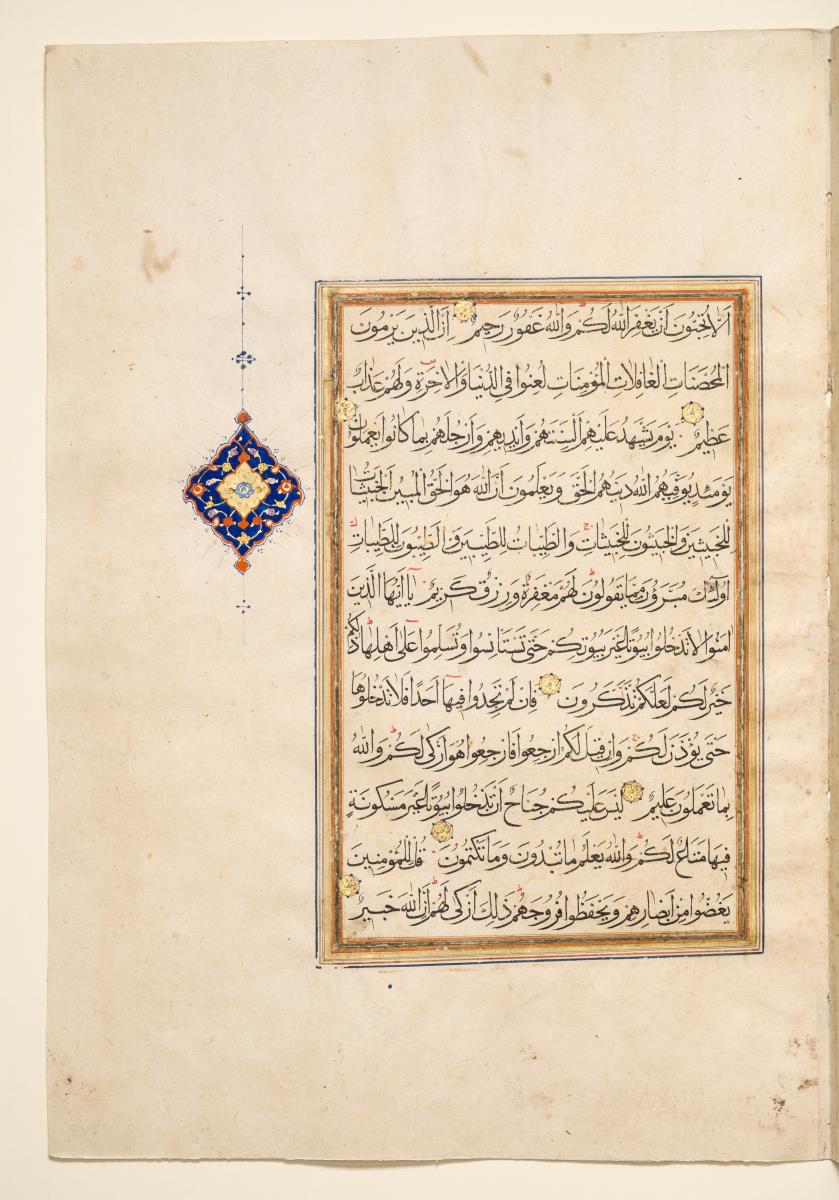 اَلَا تُحِبُّونَ اَنْ يَغْفِرَ اللّٰهُ لَكُمْ وَاللّٰهُ غَفُورٌ رَحِيمٌ اِنَّ الَّذِينَ يَرْمُونَ
الْمُحْصَنَاتِ الْغَافِلَاتِ الْمُؤْمِنَاتِ لُعِنُوا فِي الدُّنْيَا وَالْاٰخِرَةِ وَلَهُمْ عَذَابٌ
عَظِيمٌ يَوْمَ تَشْهَدُ عَلَيْهِمْ اَلْسِنَتُهُمْ وَاَيْدِيهِمْ وَاَرْجُلُهُمْ بِمَا كَانُوا يَعْمَلُونَ
يَوْمَئِذٍ يُوَفِّيهِمُ اللّٰهُ دِينَهُمُ الْحَقَّ وَيَعْلَمُونَ اَنَّ اللّٰهَ هُوَ الْحَقُّ الْمُبِينُ اَلْخَبِيثَاتُ
لِلْخَبِيثِينَ وَالْخَبِيثُونَ لِلْخَبِيثَاتِ وَالطَّيِّبَاتُ لِلطَّيِّبِينَ وَالطَّيِّبُونَ لِلطَّيِّبَاتِ
اُولٰئِكَ مُبَرَّؤُنَ مِمَّا يَقُولُونَ لَهُمْ مَغْفِرَةٌ وَرِزْقٌ كَرِيمٌ يَا اَيُّهَا الَّذِينَ
اٰمَنُوا لَا تَدْخُلُوا بُيُوتًا غَيْرَ بُيُوتِكُمْ حَتّٰى تَسْتَانِسُوا وَتُسَلِّمُوا عَلٰى اَهْلِهَا ذٰلِكُمْ
خَيْرٌ لَكُمْ لَعَلَّكُمْ تَذَكَّرُونَ فَاِنْ لَمْ تَجِدُوا فِيهَا اَحَدًا فَلَا تَدْخُلُوهَا
حَتّٰى يُؤْذَنَ لَكُمْ وَاِنْ قِيلَ لَكُمُ ارْجِعُوا فَارْجِعُوا هُوَ اَزْكٰى لَكُمْ وَاللّٰهُ
بِمَا تَعْمَلُونَ عَلِيمٌ لَيْسَ عَلَيْكُمْ جُنَاحٌ اَنْ تَدْخُلُوا بُيُوتًا غَيْرَ مَسْكُونَةٍ
فِيهَا مَتَاعٌ لَكُمْ وَاللّٰهُ يَعْلَمُ مَا تُبْدُونَ وَمَا تَكْتُمُونَ قُلْ لِلْمُؤْمِنِينَ
يَغُضُّوا مِنْ اَبْصَارِهِمْ وَيَحْفَظُوا فُرُوجَهُمْ ذٰلِكَ اَزْكٰى لَهُمْ اِنَّ اللّٰهَ خَبِيرٌ